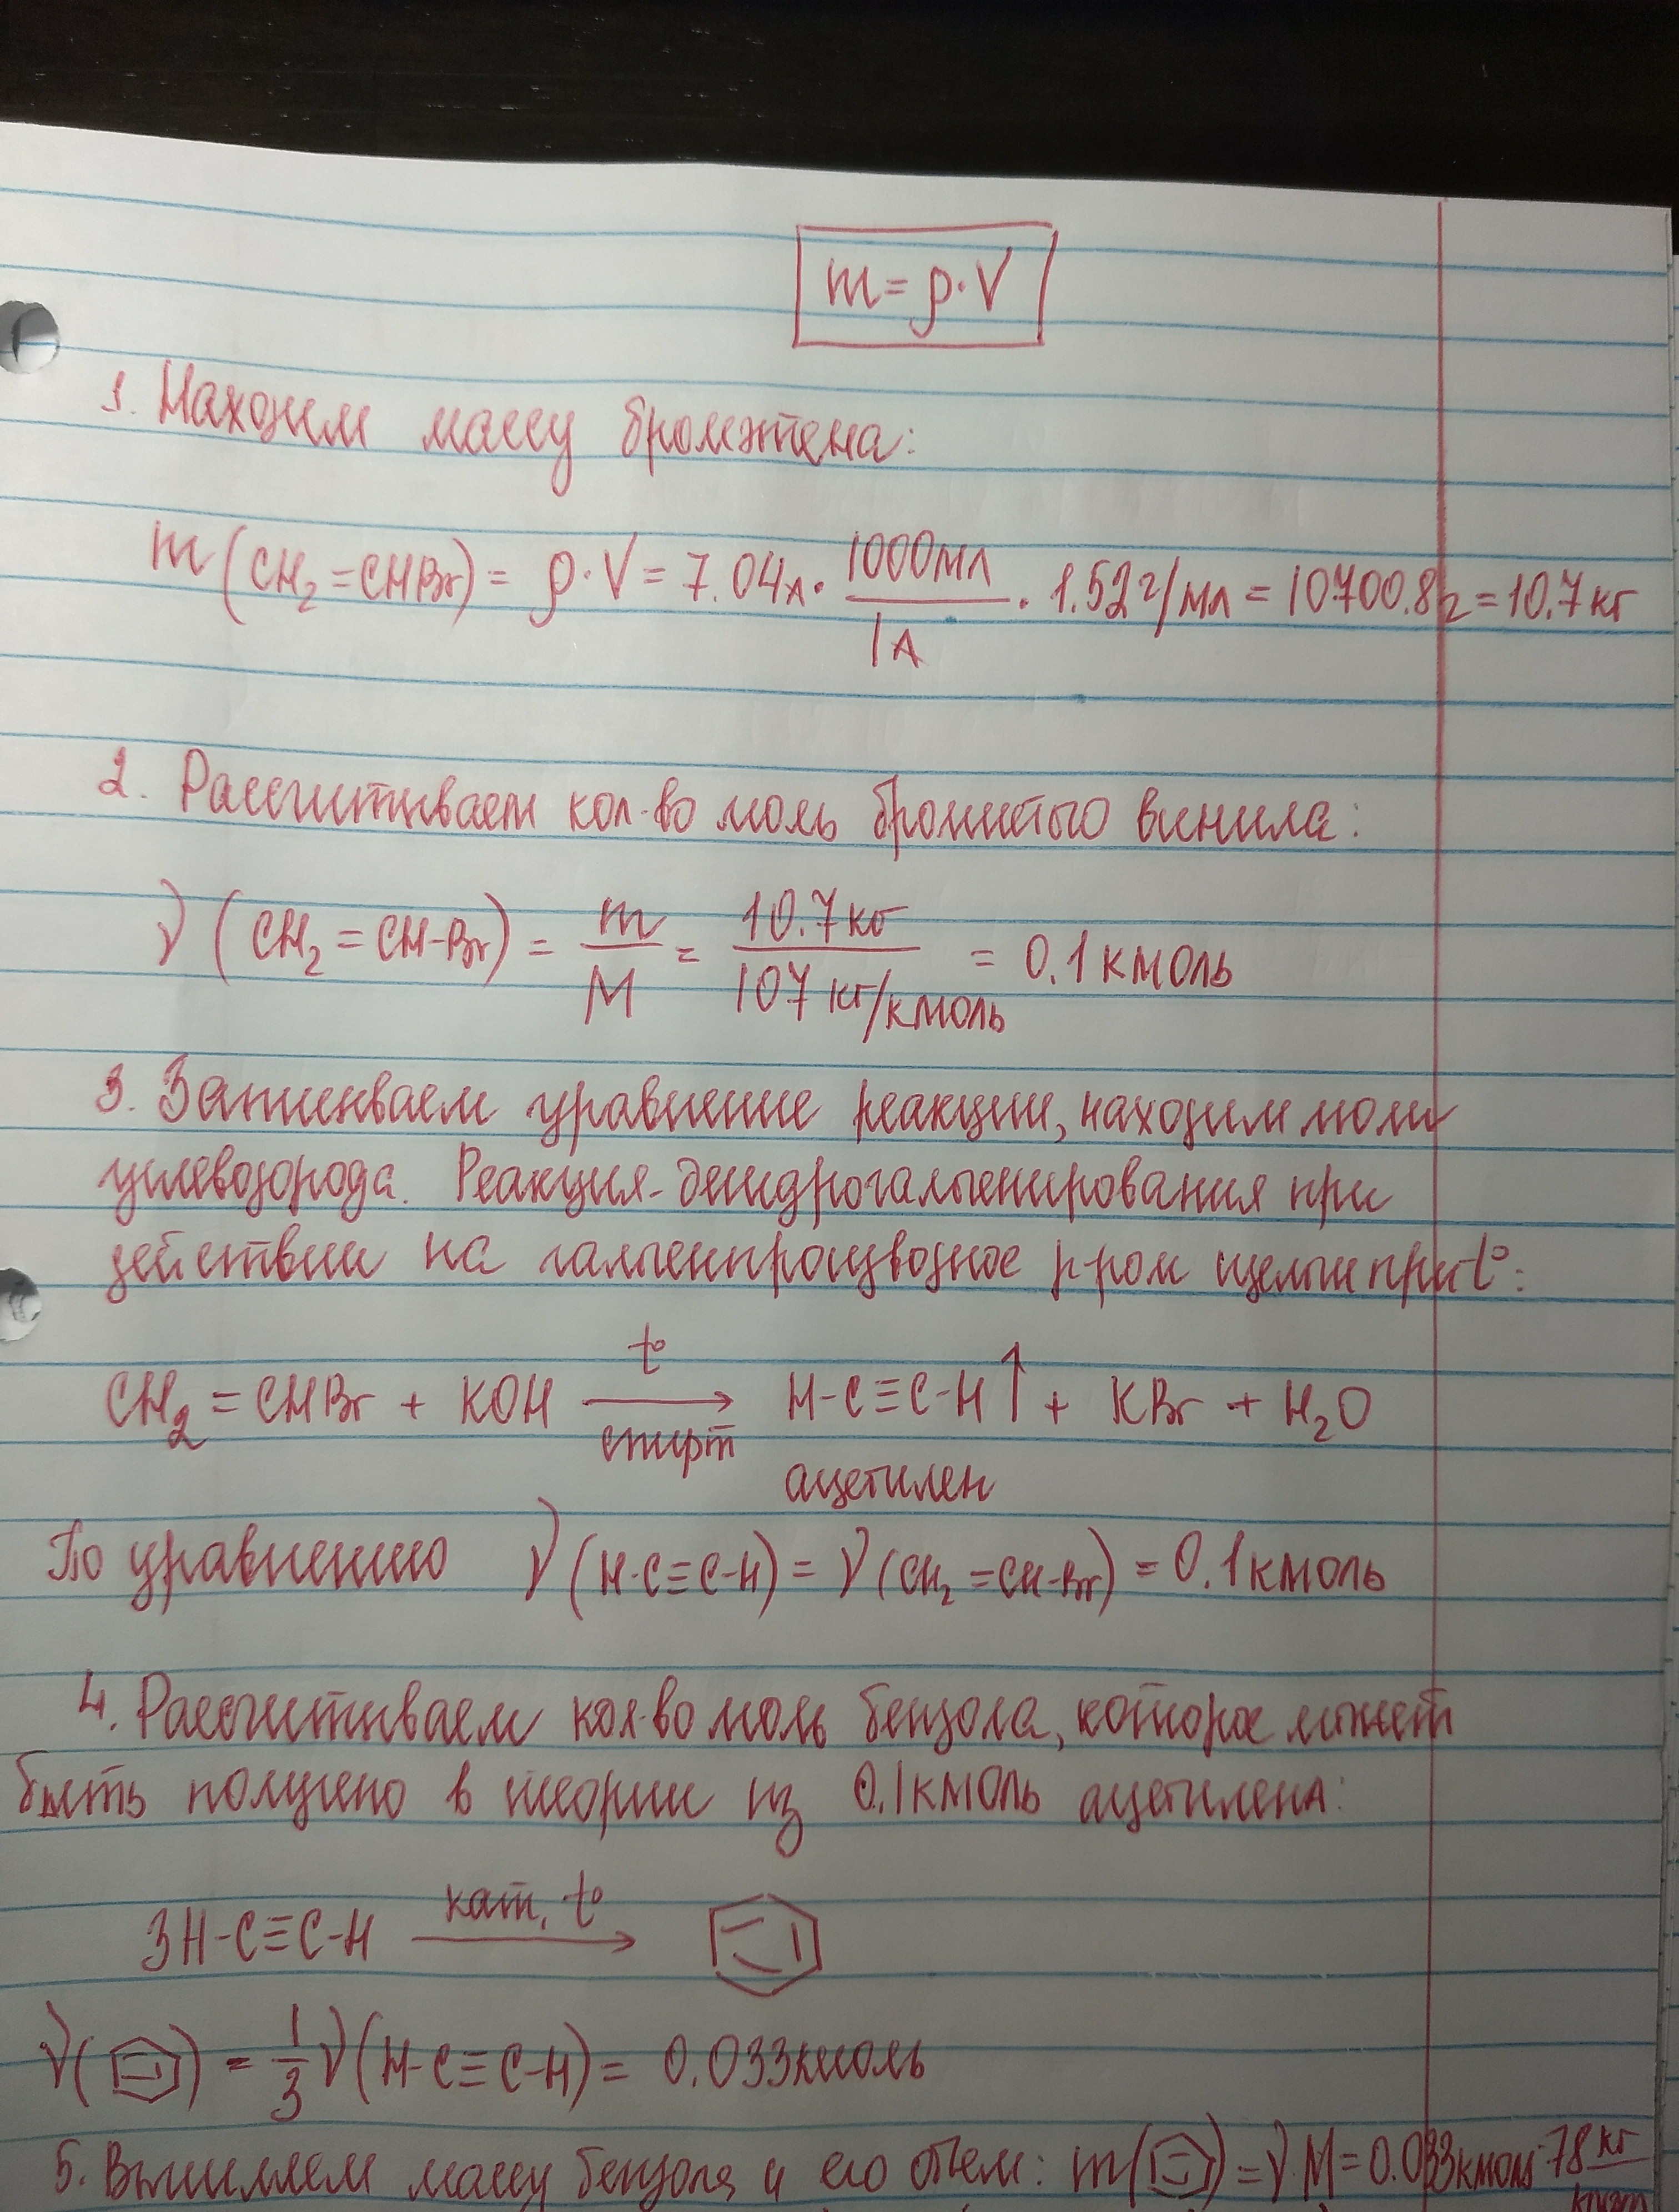 m = ρ·V
1. Находим массу бромэтена:
m(CH₂=CHBr) = ρ·V = 7.04л · 1000мл/1л · 1.52г/мл = 10700.8г = 10.7кг
2. Рассчитываем кол-во моль бромистого винила:
ν(CH₂=CH-Br) = m/M = 10.7кг/107кг/кмоль = 0.1кмоль
3. Записываем уравнение реакции, находим моли
углеводорода. Реакция - дегидрогалогенирования при
действии на галогенпроизводное р-ром щелочи при t°:
CH₂=CHBr + KOH t° → спирт H-C≡C-H↑ + KBr + H₂O
ацетилен
По уравнению ν(H-C≡C-H) = ν(CH₂=CH-Br) = 0.1кмоль
4. Рассчитываем кол-во моль бензола, которое может
быть получено в теории из 0.1кмоль ацетилена:
3H-C≡C-H кат, t° →
ν( ) = 1/3 ν(H-C≡C-H) = 0.033кмоль
5. Вычисляем массу бензола и его объем: m( ) = ν·M = 0.033кмоль·78 кг/кмоль